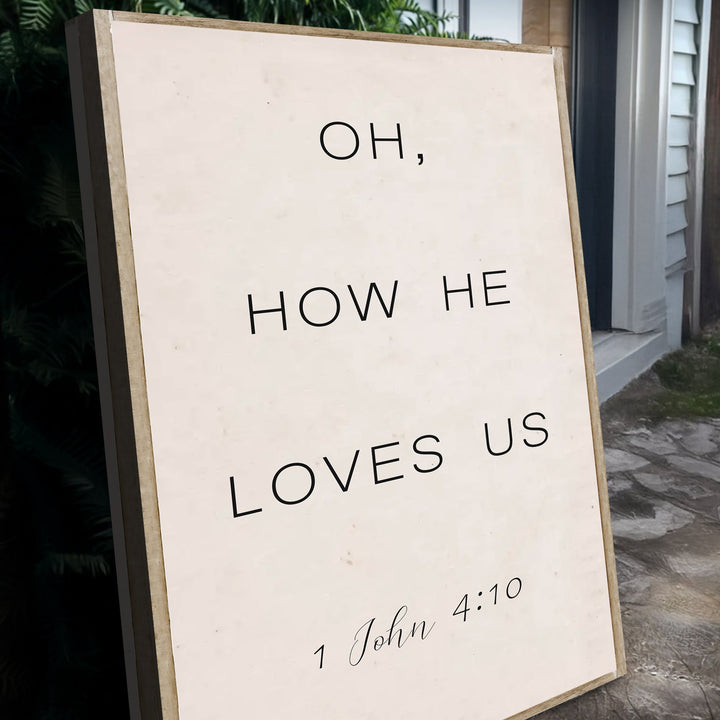 OH,
HOW HE
LOVES US
1 John 4:10